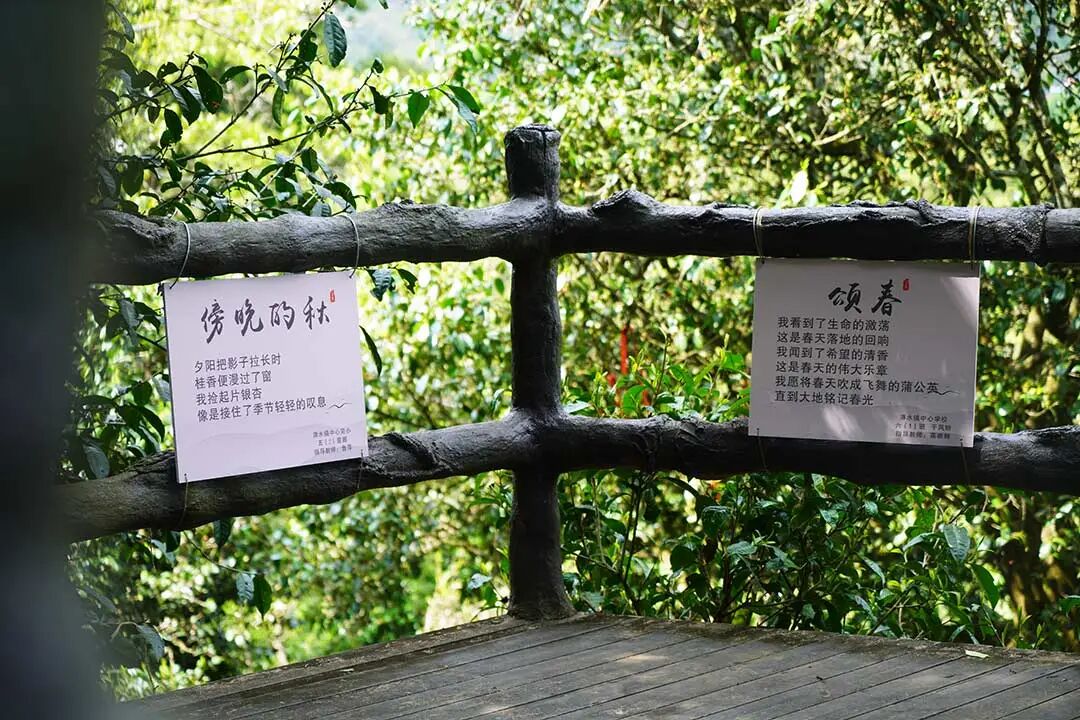 傍晚的秋
夕阳把影子拉长时
桂香便漫过了窗
我捡起片银杏
像是接住了季节轻轻的叹息
颂春
我看到了生命的激荡
这是春天落地的回响
我闻到了希望的清香
这是春天的伟大乐章
我愿将春天吹成飞舞的蒲公英
直到大地铭记春光